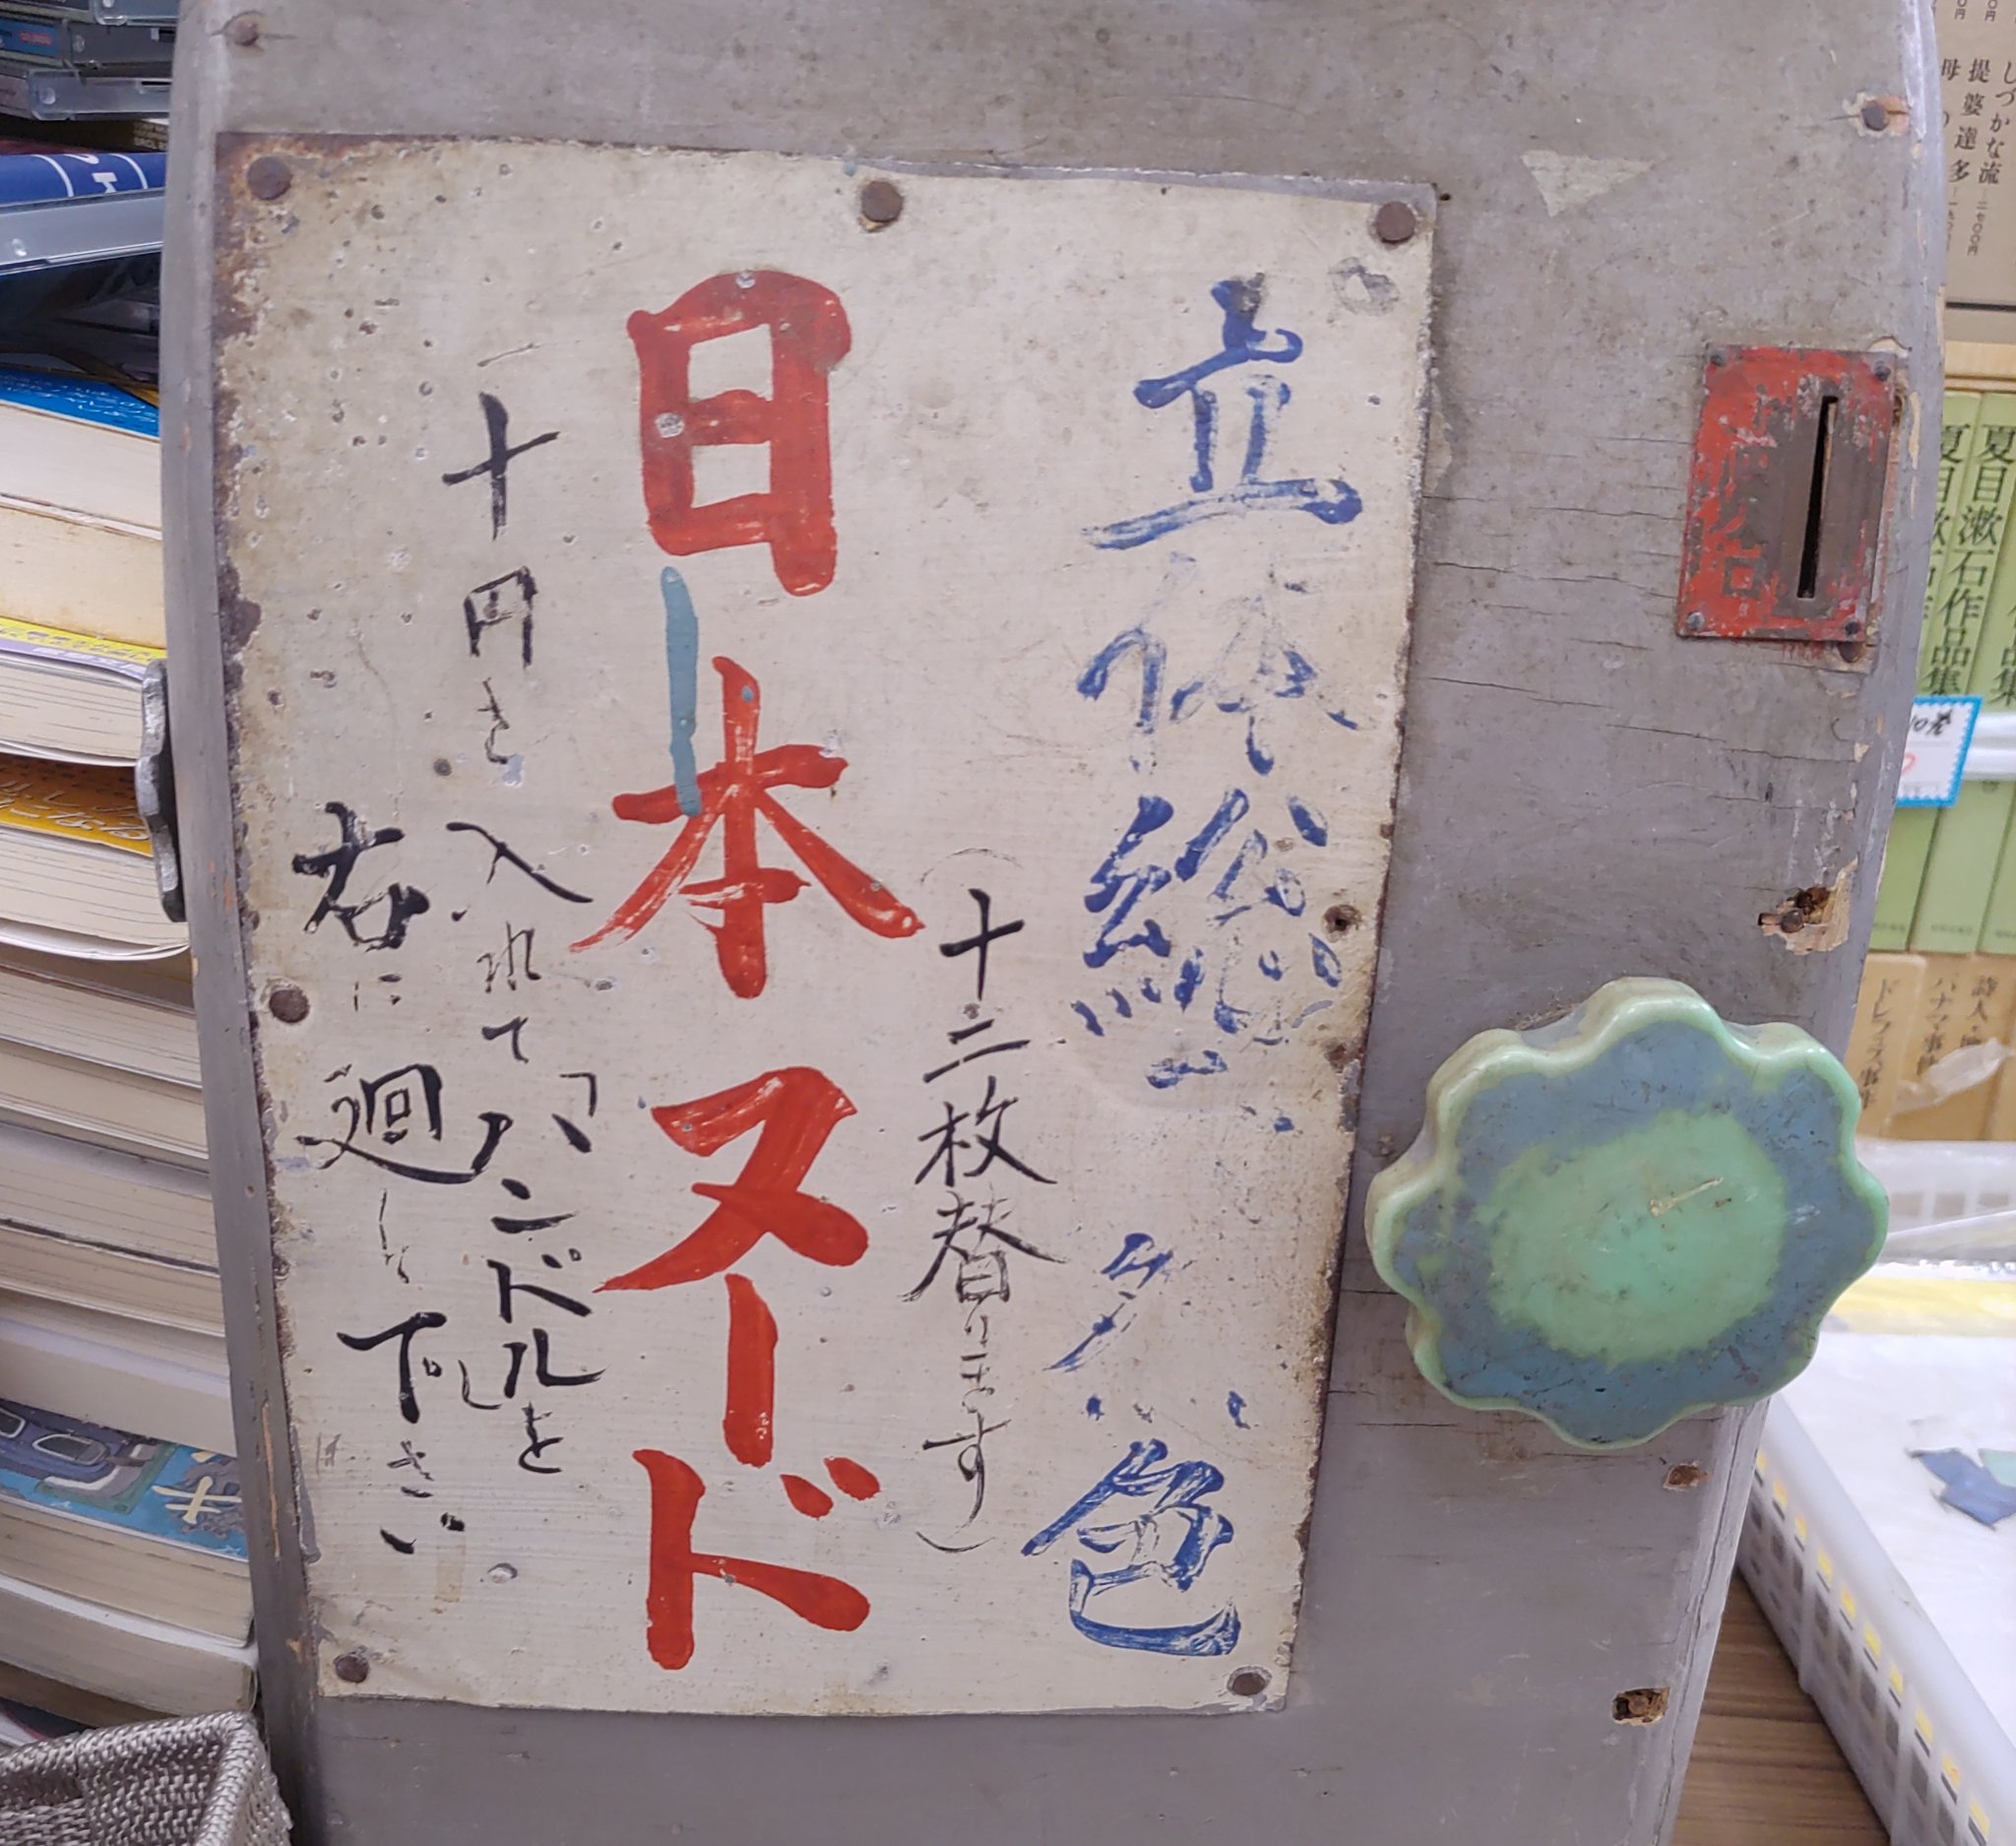 立体総天然色
(十二枚替ります)
日本ヌード
十円を入れてハンドルを
右に廻して下さい
しづかな流
提婆達多
夏目漱石作品集
夏目漱石作品集
詩人・
パナマ事件
ドレフュス事件